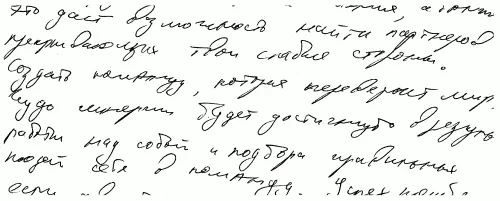 это даёт возможность найти партнеров
прикрывающих твои слабые стороны.
Создать команду, которая перевернёт мир.
Чудо синергии будет достигнуто в резуль
работы над собой и подбора правильных
людей себе в команду. Успех
если